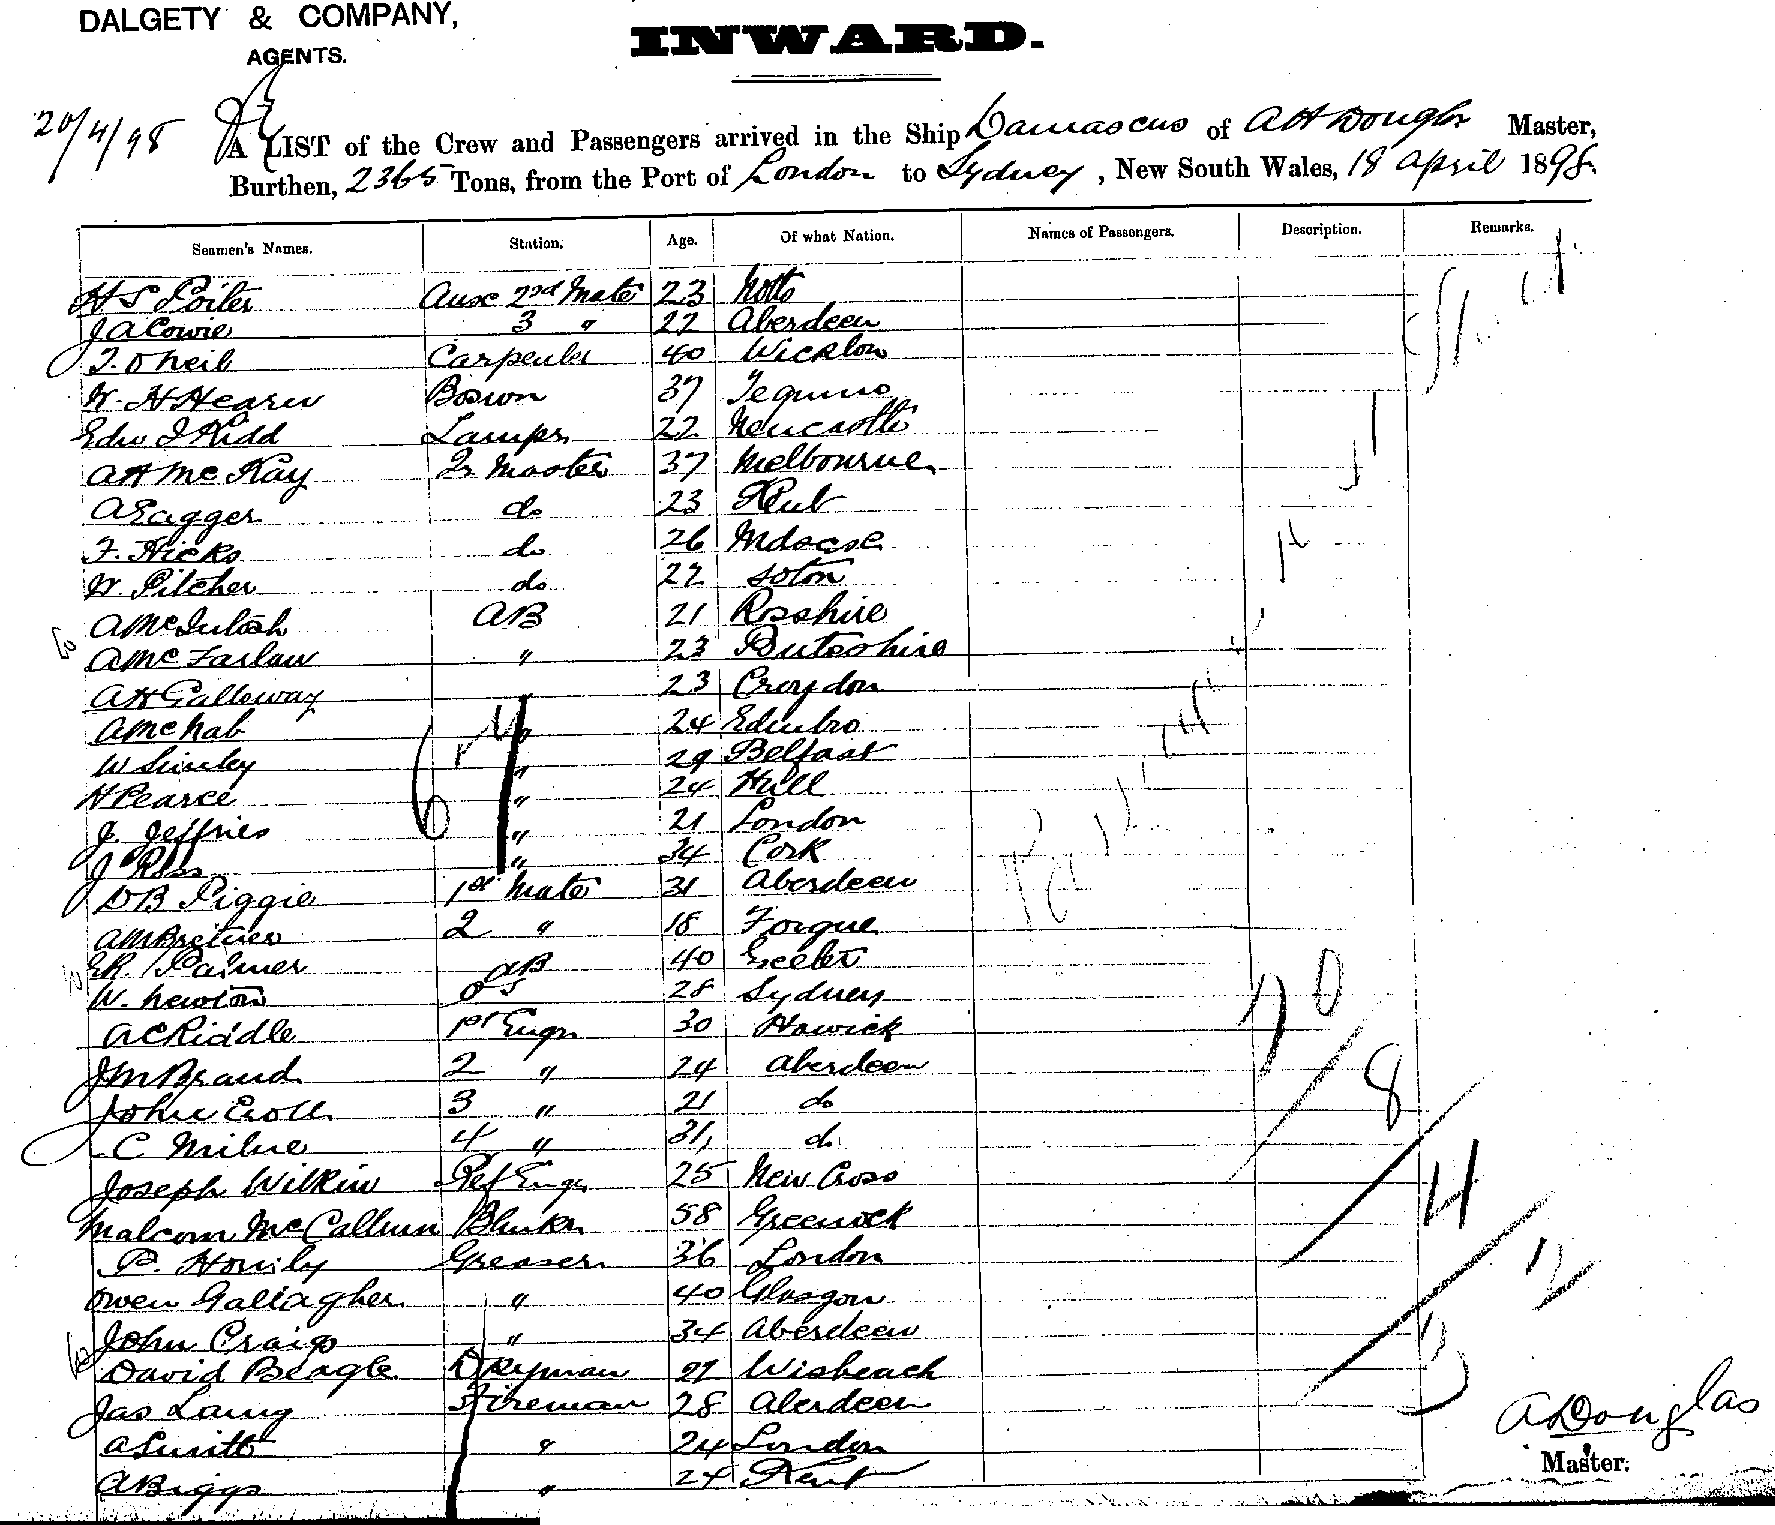 DALGETY & COMPANY,
AGENTS.
INWARD.
20/4/98
A LIST of the Crew and Passengers arrived in the Ship Damascus of A H Douglas Master,
Burthen, 2365 Tons, from the Port of London to Sydney, New South Wales, 18 April 1898.
Seamen's Names. Station. Age. Of what Nation. Names of Passengers. Description. Remarks.
H S Poiler Aux 2nd Mate 23 Notts
J A Cowie 3 " 22 Aberdeen
T. O Neil Carpenter 40 Wicklow
W. H Hearn Bosun 37
Edw J Kidd Lamps 22 Newcastle
A H McKay Qr Master 37 Melbourne
A Eagger do 23 Kent
F. Hicks do 26
W. Pitcher do 22 Soton
A McIntosh AB 21 Rosshire
A McFarlan " 23 Buteshire
A H Galloway " 23 Croydon
A McNab " 24 Edinbro
W " 29 Belfast
H Pearce " 24 Hull
J. Jeffries " 21 London
J Ross " 34 Cork
D B Piggie 1st Mate 31 Aberdeen
2 " 18 Forgue
E R. Palmer AB 40 Exeter
W. Newton OS 28 Sydney
A C Riddle 1st Engr 30 Hawick
J M Brand 2 " 24 Aberdeen
John Croll 3 " 21 do
C Milne 4 " 31 do
Joseph Wilkin Ref Engr 25 New Cross
Malcom McCallum 58 Greenock
P. Greaser 36 London
Owen Gallagher " 40 Glasgow
John Craig " 34 Aberdeen
David Beagle Dkeyman 27 Wisbeach
Jas Laing Fireman 28 Aberdeen
A Smith " 24 London
A Biggs " 24 Kent
70
8
4
A Douglas
Master.